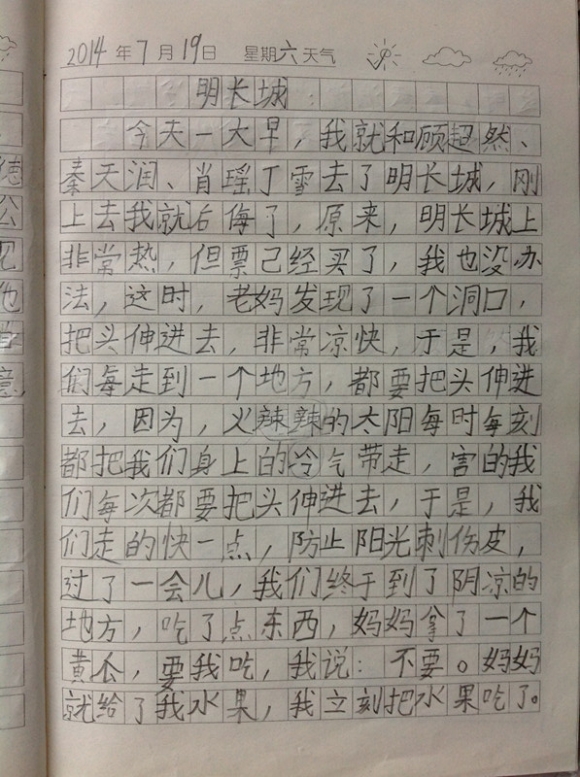 2014年7月19日 星期六天气
明长城
今天一大早，我就和顾超然、
秦天润、肖瑶丁雪去了明长城，刚
上去我就后悔了，原来，明长城上
非常热，但票已经买了，我也没办
法，这时，老妈发现了一个洞口，
把头伸进去，非常凉快，于是，我
们每走到一个地方，都要把头伸进
去，因为，火辣辣的太阳每时每刻
都把我们身上的冷气带走，害的我
们每次都要把头伸进去，于是，我
们走的快一点，防止阳光刺伤皮，
过了一会儿，我们终于到了阴凉的
地方，吃了点东西，妈妈拿了一个
黄瓜，要我吃，我说：不要。妈妈
就给了我水果，我立刻把水果吃了。
德
公
他
意